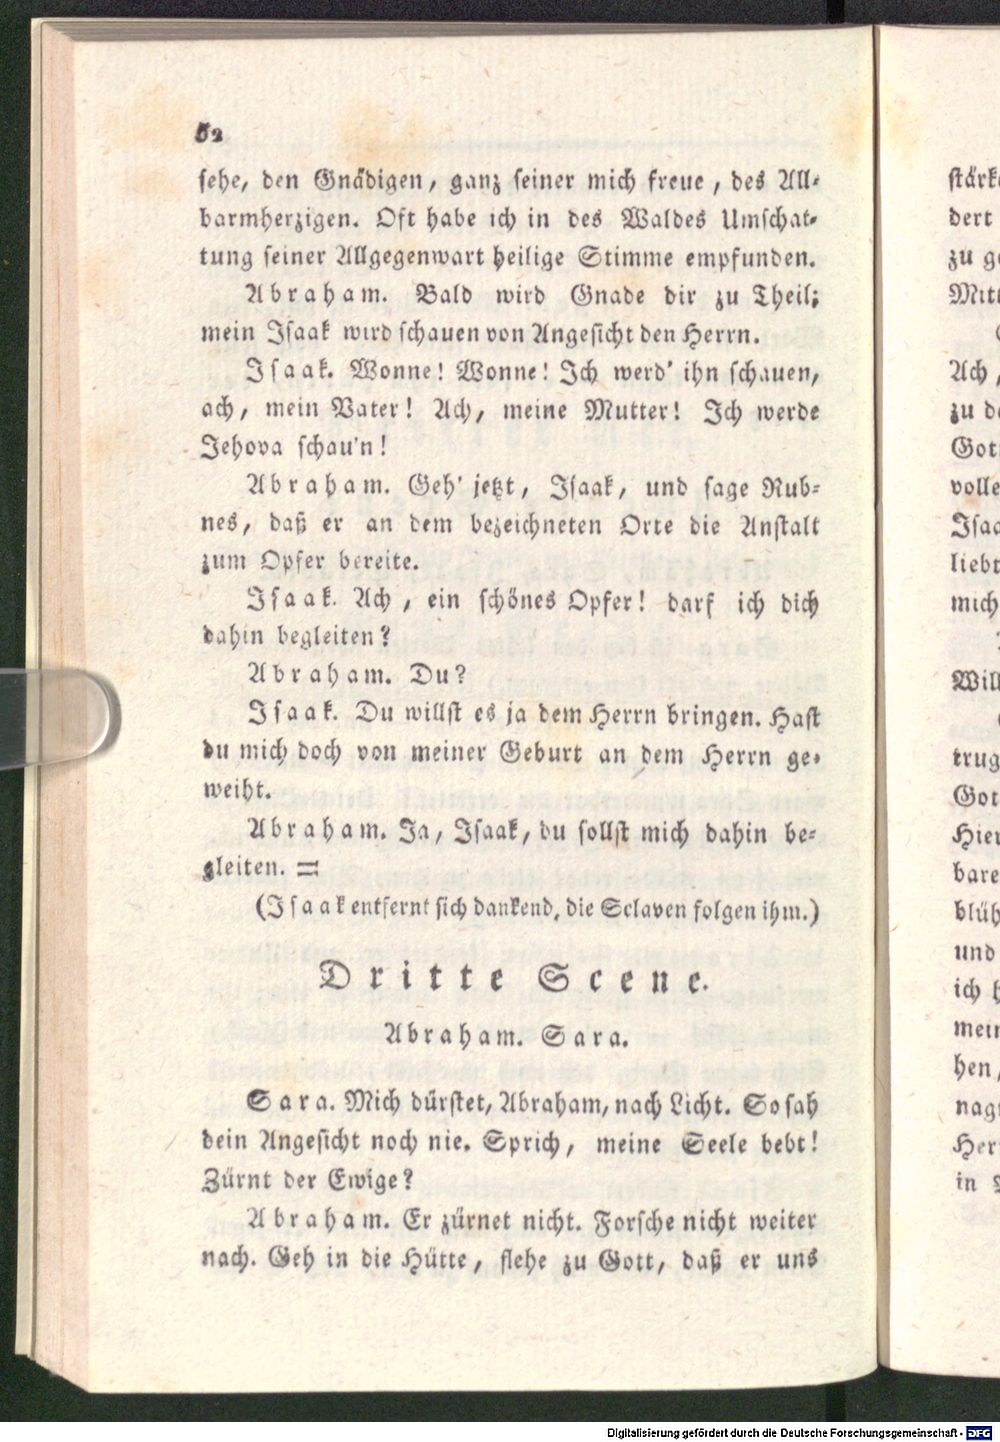 52
sehe, den Gnädigen, ganz seiner mich freue, des All-
barmherzigen. Oft habe ich in des Waldes Umschat-
tung seiner Allgegenwart heilige Stimme empfunden.
Abraham. Bald wird Gnade dir zu Theil;
mein Isaak wird schauen von Angesicht den Herrn.
Isaak. Wonne! Wonne! Ich werd' ihn schauen,
ach, mein Vater! Ach, meine Mutter! Ich werde
Jehova schau'n!
Abraham. Geh' jetzt, Isaak, und sage Rub-
nes, daß er an dem bezeichneten Orte die Anstalt
zum Opfer bereite.
Isaak. Ach, ein schönes Opfer! darf ich dich
dahin begleiten?
Abraham. Du?
Isaak. Du willst es ja dem Herrn bringen. Hast
du mich doch von meiner Geburt an dem Herrn ge-
weiht.
Abraham. Ja, Isaak, du sollst mich dahin be-
gleiten. =
(Isaak entfernt sich dankend, die Sclaven folgen ihm.)
Dritte Scene.
Abraham. Sara.
Sara. Mich dürstet, Abraham, nach Licht. So sah
dein Angesicht noch nie. Sprich, meine Seele bebt!
Zürnt der Ewige?
Abraham. Er zürnet nicht. Forsche nicht weiter
nach. Geh in die Hütte, flehe zu Gott, daß er uns
dert
Ach,
mich
trug
und
ich
in
Digitalisierung gefördert durch die Deutsche Forschungsgemeinschaft - DFG